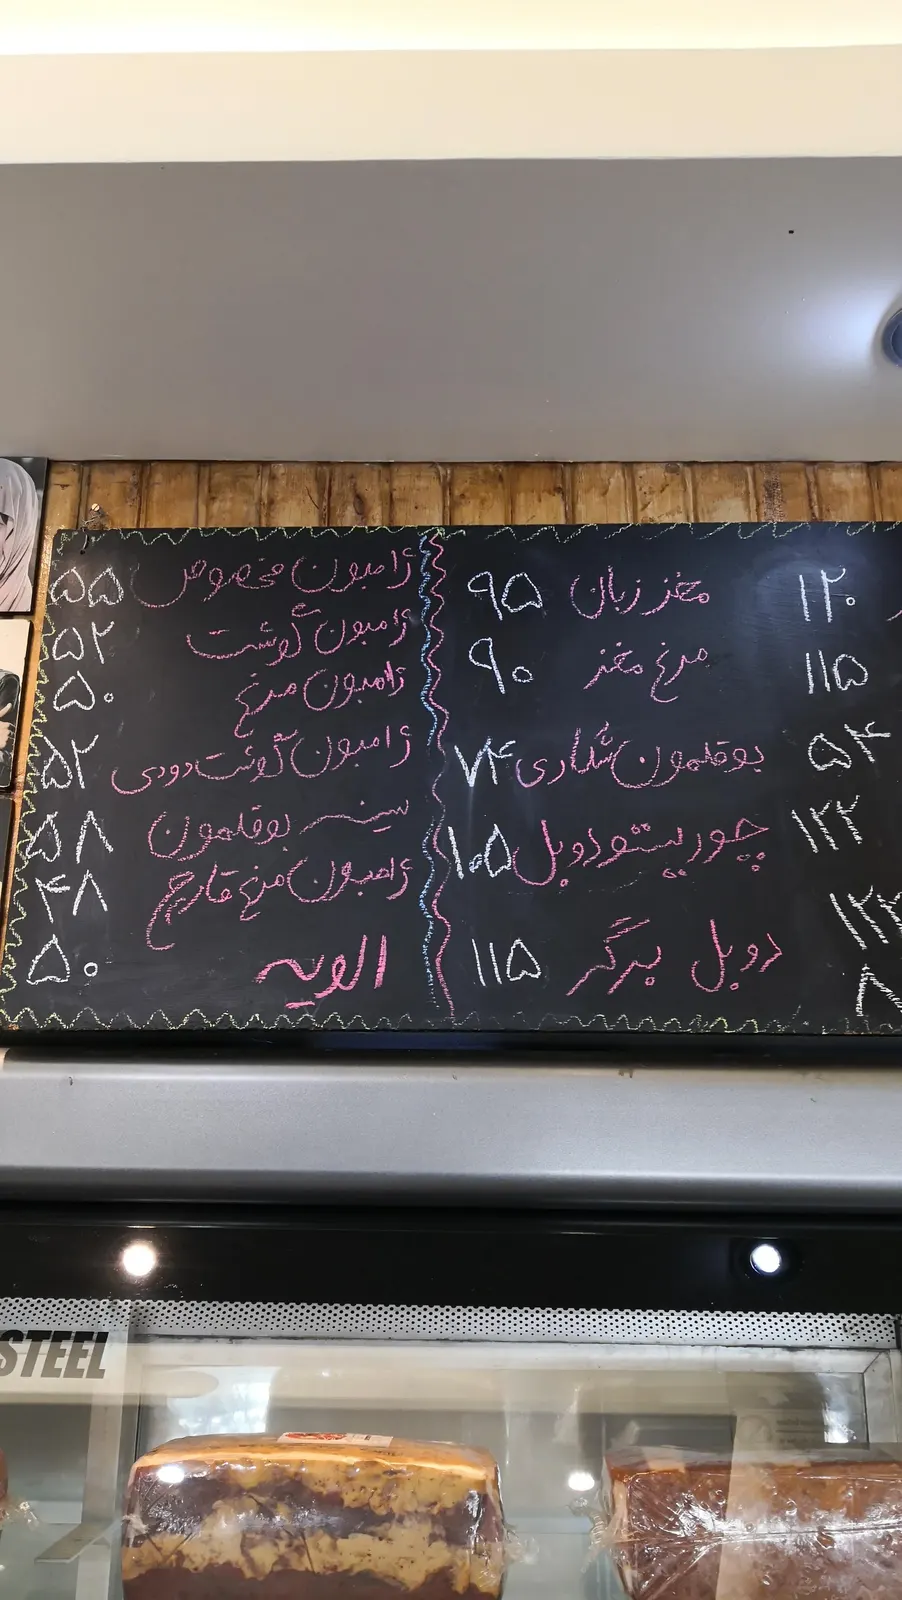 ۱۲۰
۱۱۵
۵۴
۱۲۲
مغز زبان ۹۵
مرغ مغز ۹۰
بوقلمون شکاری ۷۴
چوریستو دوبل ۱۰۵
دوبل برگر ۱۱۵
ژامبون مخصوص ۵۵
ژامبون گوشت ۵۲
ژامبون مرغ ۵۰
ژامبون گوشت دودی ۵۲
سینه بوقلمون ۵۸
ژامبون مرغ قارچ ۴۸
الویه ۵۰
STEEL